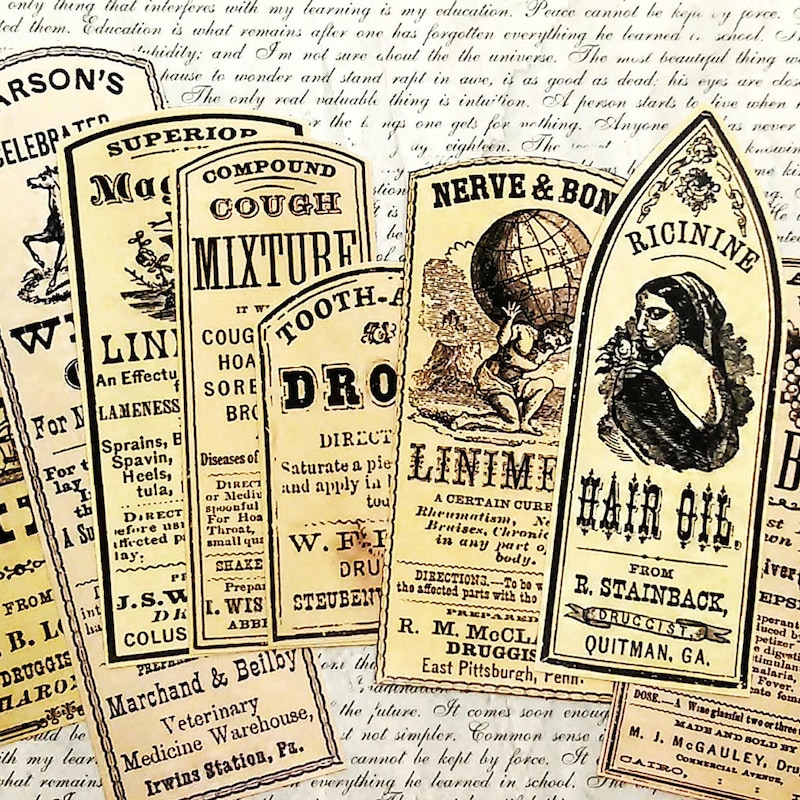 only thing that interferes with my learning is my education. Peace cannot be kept by force.
ted them. Education is what remains after one has forgotten everything he learned in school.
stupidity; and I'm not sure about the the universe. The most beautiful thing
pause to wonder and stand rapt in awe, is as good as dead: his eyes are
The only real valuable thing is intuition. A person starts to live when
one gets for nothing. Anyone as never
eighteen.
ARSON'S
CELEBRATED
For
Marchand & Beilby
Veterinary
Medicine Warehouse,
Irwins Station, Pa.
FROM
DRUGGIS
SUPERIOR
Mag
LINI
An Effectu
LAMENESS
Sprains, B
Spavin,
Heels,
tula,
DIRECT
efore us
ffected p
lay.
J.S.W
COLUS
COMPOUND
COUGH
MIXTURE
IT W
COUG
HOA
SORE
BRO
Diseases of
DIRECT
or Medi
spoonful
For Hoa
Throat,
small qu
SHAKE
Prepar
I. WIS
ABB
TOOTH-A
DRO
DIRECT
Saturate a pie
and apply in
W. F.
DRU
STEUBENV
NERVE & BON
LINIME
A CERTAIN CURE
Rheumatism, N
Bruises, Chronic
in any part o
body.
DIRECTIONS.—To be w
the affected parts with the
PREPARED
R. M. McCLA
DRUGGIS
East Pittsburgh, Penn.
RICININE
HAIR OIL.
FROM
R. STAINBACK,
DRUGGIST,
QUITMAN, GA.
DOSE.—A Wineglassful two or three
MADE AND SOLD BY
M. J. McGAULEY, Dru
COMMERCIAL AVENUE,
CAIRO,
the future. It comes soon enough
not simpler. Common sense
cannot be kept by force. It
everything he learned in school. The